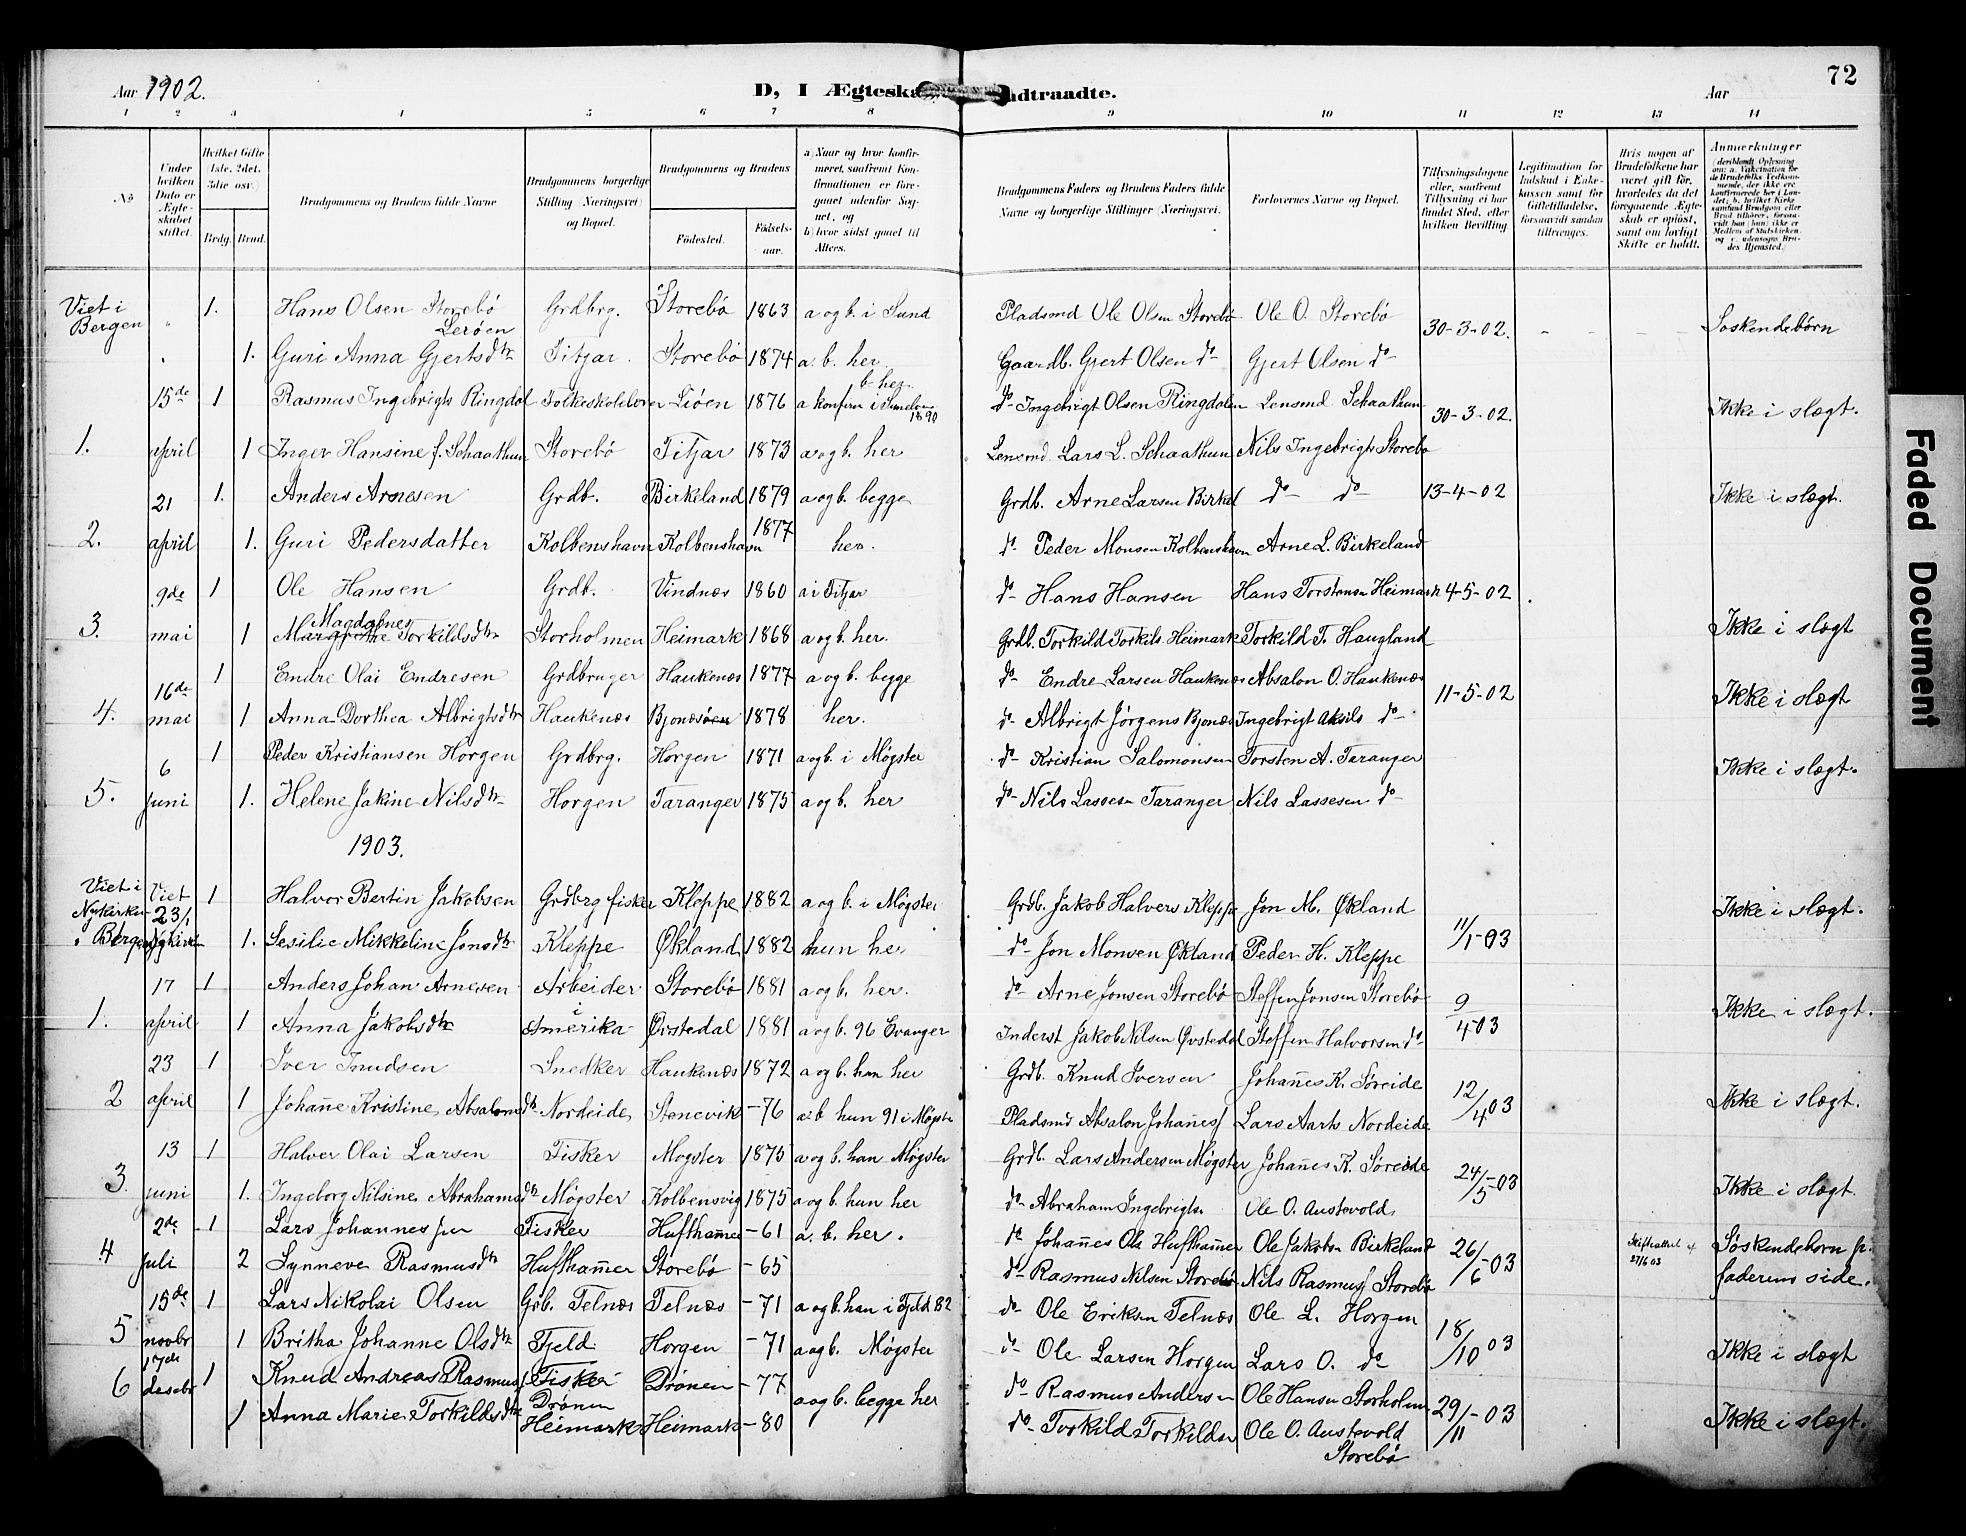 Aar 1902. D, I Ægteska adtraadte. Aar 72
1 2 3 4 5 6 7 8 9 10 11 12 13 14
No
Under hvilken Dato er Ægteskabet stiftet.
Hvilket Gifte (1ste, 2det, 3die osv.)
Brdg. Brud.
Brudgommens og Brudens fulde Navne
Brudgommens borgerlige Stilling (Næringsvei) og Bopæl.
Brudgommens og Brudens
Födested. Födsels-aar.
a) Naar og hvor konfirmeret, saafremt Konfirmationen er foregaaet udenfor Sognet, og b) hvor sidst gaaet til Alters.
Brudgommens Faders og Brudens Faders fulde Navne og borgerlige Stillinger (Næringsvei.
Forlovernes Navne og Bopæl.
Tillysningsdagene eller, saafremt Tillysning ei har fundet Sted, efter hvilken Bevilling.
Legitimation for Indskud i Enkekassen samt for Giftetilladelse, forsaavidt saadan tiltrænges.
Hvis nogen af Brudefolkene har været gift för, hvorledes da det foregaaende Ægteskab er oplöst, samt om lovligt Skifte er holdt.
Anmærkninger (deriblandt Oplysning om: a. Vakcination for de Brudefolks Vedkommende, der ikke ere konfirmerede her i Landet; b. hvilket Kirkesamfund Brudgom eller Brud tilhörer, forsaavidt han (hun) ikke er Medlem af Statskirken, og c. udensogns Brudes Hjemsted.)
Viet i Bergen " 1. Hans Olsen Storebö Leröen Grdbrg. Storebö 1863 a og b. i Sund Pladsmd Ole Olsen Storebö Ole O. Storebö 30-3-02. - - - Söskendebörn
" 1. Guri Anna Gjertsdtr Fitjar. Storebö 1874 a. b. her. Gaardb. Gjert Olsen do Gjert Olsen do
15de 1 Rasmus Ingebrigts Ringdal Folkeskolelærer Liöen 1876 a konfirm i 1890 b her. do Ingebrigt Olsen Ringdalen Lensmd Schaathun 30-3-02. Ikke i slægt.
1. april 1 Inger Hansine f. Schaathun Storebö Fitjar 1873 a og b. her Lensmd. Lars L. Schaathun Nils Ingebrigts Storebö
21 1. Anders Arnesen Grdb. Birkeland 1879 a og b. begge Grdb. Arne Larsen Birkel do do 13-4-02 Ikke i slægt.
2. april 1. Guri Pedersdatter Kolbenshavn Kolbenshavn 1877 her. do Peder Monsen Kolbenshavn Arne L. Birkeland
9de 1 Ole Hansen Grdb. Vindnæs 1860 a i Fitjar do Hans Hansen Hans Torstensen Heimark 4-5-02
3. mai 1 Magdalene Torkildsdtr Storholmen Heimark 1868 a og b. her. Grdb. Torkild Torkils. Heimark Torkild T. Haugland Ikke i slægt
16de 1 Endre Olai Endresen Grdbruger Haukenæs 1877 a og b. begge do Endre Larsen Haukenæs Absalon O. Haukenæs 11-5-02 Ikke i slægt
4. mai 1 Anna Dorthea Albrigtsdtr Haukenæs Bjonæsöen 1878 her. do Albrigt Jörgens Bjonæs Ingebrigt Aksils do
6 1 Peder Kristiansen Horgen Grdbrg. Horgen 1871 a og b. i Møgster do Kristian Salomonsen Torsten A. Taranger Ikke i slægt.
5. juni 1. Helene Jakine Nilsdtr Horgen Taranger 1875 a og b. her do Nils Lassesen Taranger Nils Lassesen do
1903.
Viet i Nykirken Bergen Viet 23/1 1 Halvor Bertin Jakobsen Grdbrg fisker Kleppe 1882 a og b. i Møgster Grdb. Jakob Halvers Kleppe Jon M. Økland 11/1-03 Ikke i slægt.
1. Sesilie Mikkeline Jonsdtr Kleppe Økland 1882 hun her do Jon Monsen Økland Peder H. Kleppe
17 1 Anders Johan Arnesen Arbeider Storebö 1881 a og b. her. do Arne Jonsen Storebö Steffen Jonsen Storebö 9/4 03 Ikke i slægt.
1. april 1 Anna Jakobsdtr i Amerika Øvstedal 1881 a og b. 96 Evanger Inderst Jakob Nilsen Øvstedal Steffen Halvorsen do
23 1 Iver Knudsen Snedker Haukenæs 1872 a og b. han her Grdb. Knud Iversen Johannes K. Søreide 12/4 03 Ikke i slægt.
2 april 1 Johanne Kristine Absalonsdtr Nordeide Stenevik -76 a b hun 91 i Møgster Pladsmd Absalon Johannes Lars Aarts Nordeide
13 1 Halver Olai Larsen Fisker Møgster 1875 a og b. han Møgster Grdb. Lars Andersen Møgster Johannes K. Søreide 24/5-03 Ikke i slægt.
3. juni 1. Ingeborg Nilsine Abrahamsdtr Møgster Kolbensvig 1875 a og b. hun her do Abraham Ingebrigtsn Ole O. Austevold
2de 1 Lars Johannessen Fisker Hufthamer -61 a. b. her. do Johannes Ols Hufthamer Ole Jakobsen Birkeland 26/6-03 27/6 03 Söskendebörn p. faderens side.
4 juli 2 Synneve Rasmusdtr Hufthamer Storebö -65 do Rasmus Nilsen Storebö Nils Rasmus Storebö
15de 1 Lars Nikolai Olsen Gb. Telnæs Telnæs -71 a og b. han i Fjeld 82 do Ole Eriksen Telnæs Ole L. Horgen 18/10 03 Ikke i slægt
5 novbr 1 Britha Johanne Olsdtr Fjeld Horgen -71 a og b. Møgster do Ole Larsen Horgen Lars O. do
6 17de desebr 1 Knud Andreas Rasmuss Fisker Drönen Drönen -77 a og b. begge her do Rasmus Andersen Ole Hansen Storholmen 29/11-03 Ikke i slægt.
1 Anna Marie Torkildsdtr Heimark Heimark -80 do Torkild Torkildsen Ole O. Austevold Storebö
Faded Document